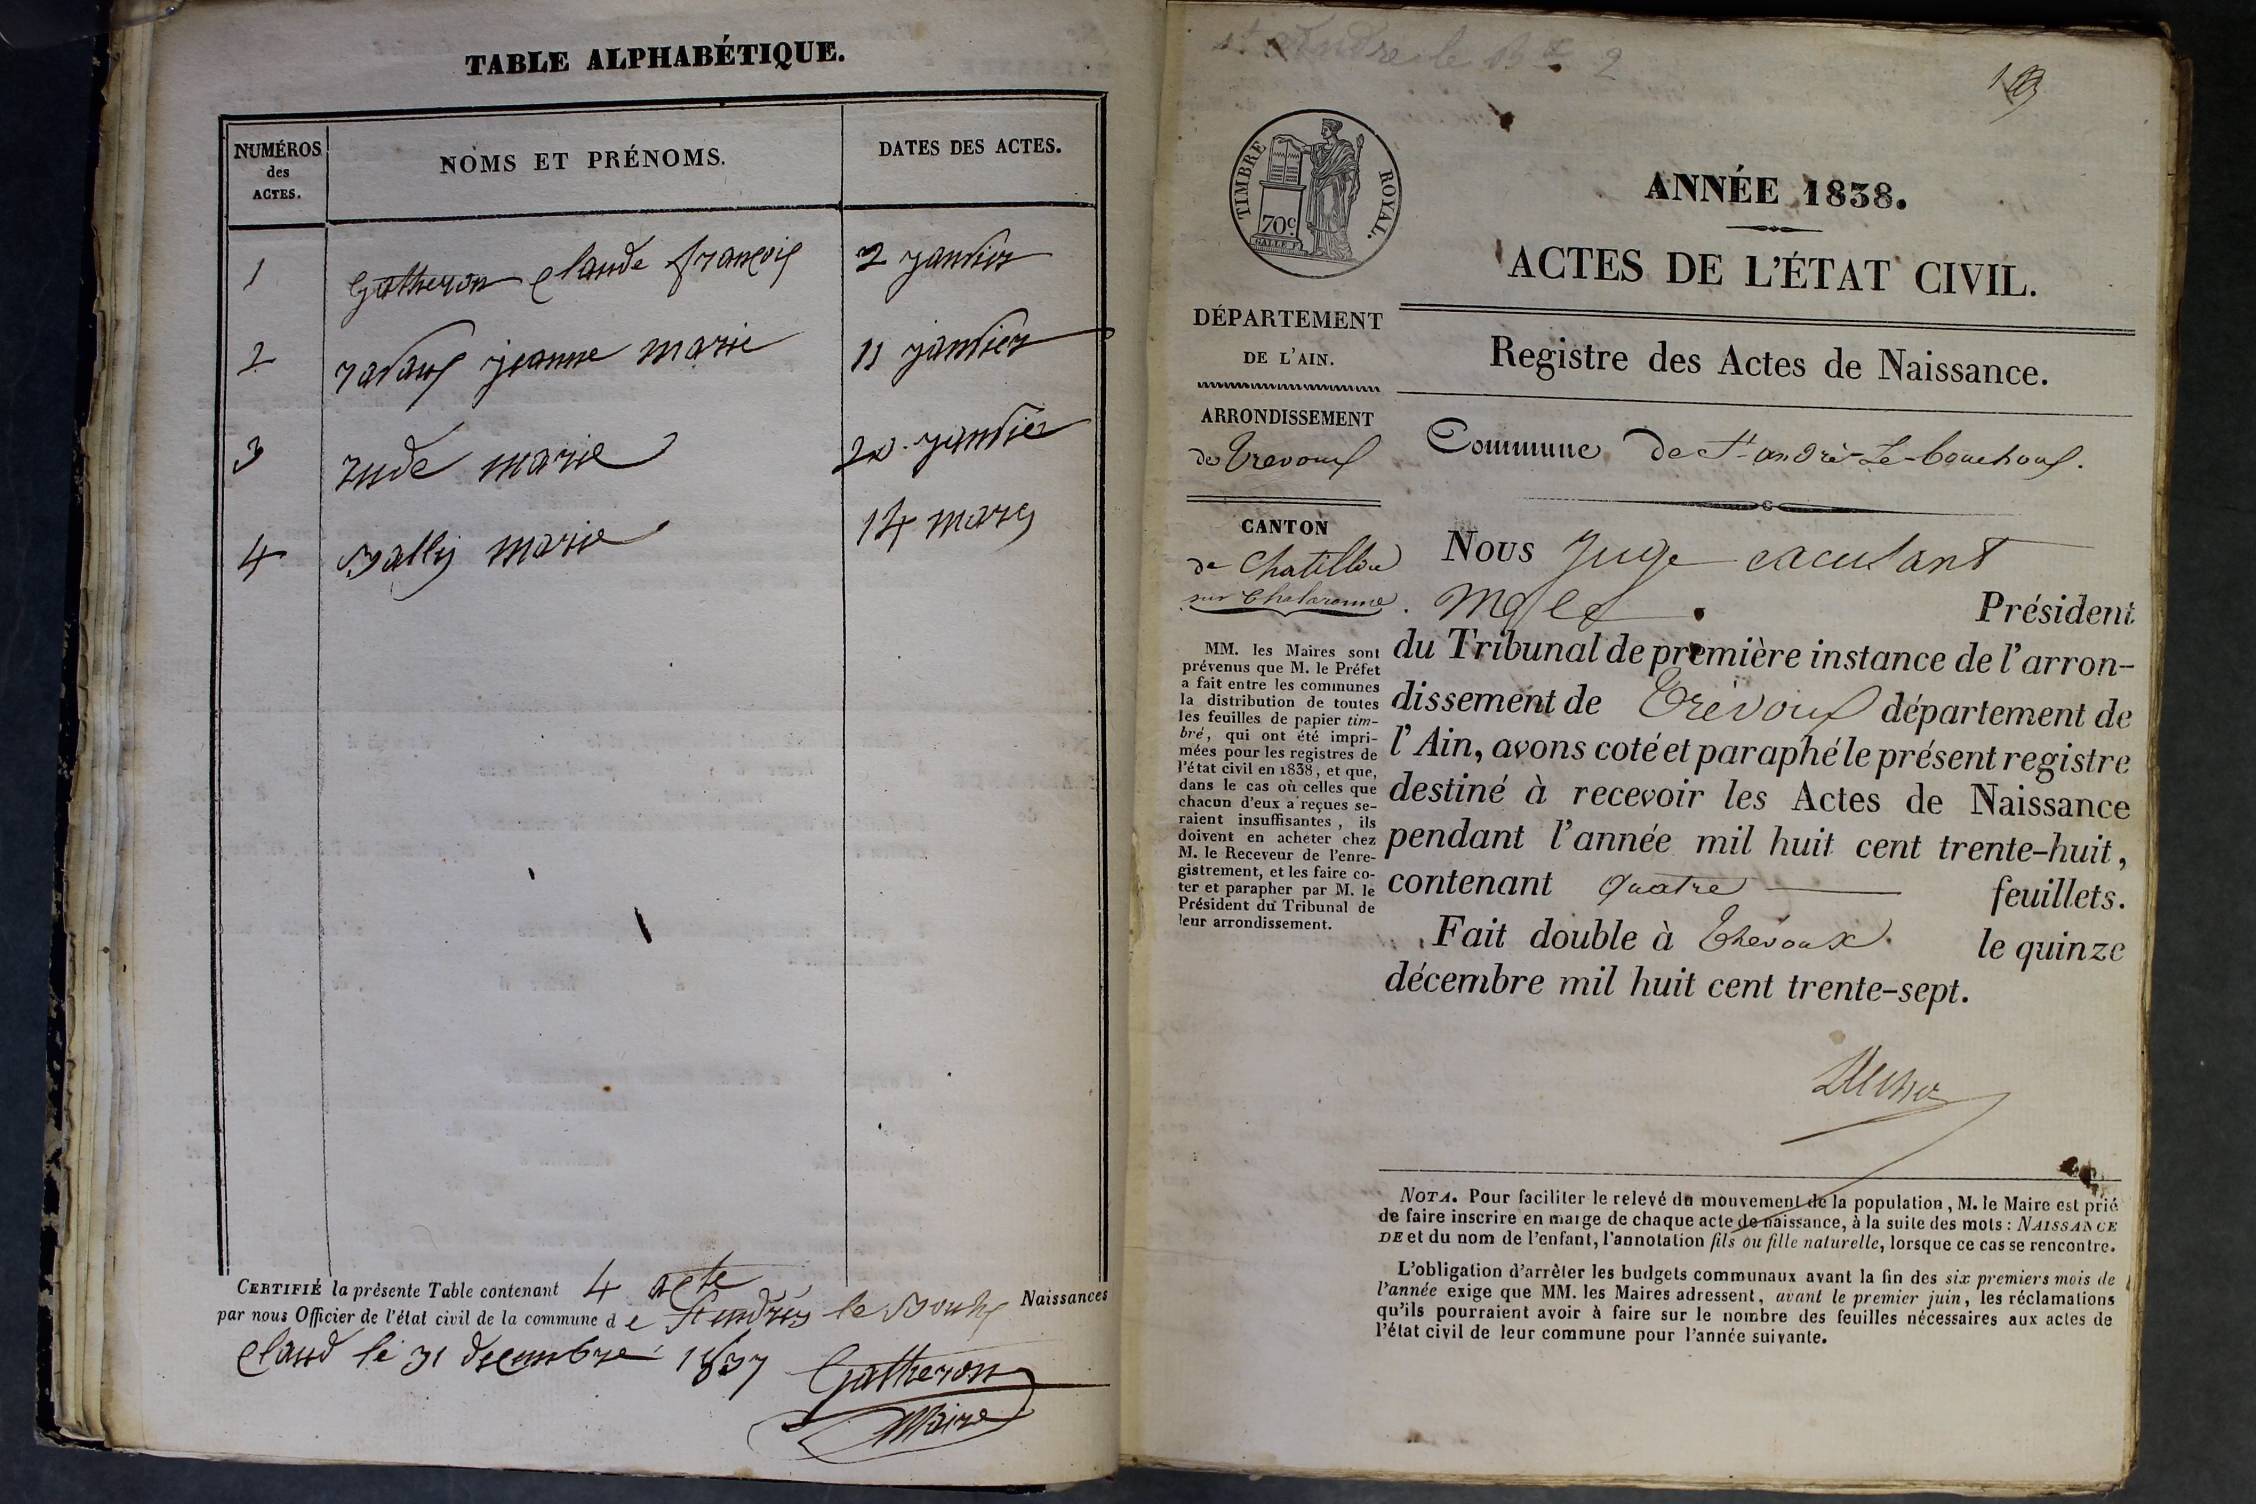 TABLE ALPHABÉTIQUE.
NUMÉROS
des
ACTES.
NOMS ET PRÉNOMS.
DATES DES ACTES.
1 Gatheron claude françois 2 janvier
2 ravaux jeanne marie 11 janvier
3 rude marie 20 janvier
4 Bally marie 14 mars
CERTIFIÉ la présente Table contenant 4 acte Naissances
par nous Officier de l'état civil de la commune de St andrés le Bouchx
claud le 31 decembre 1837 Gatheron
Maire
St André le 2
TIMBRE ROYAL.
70c.
ANNÉE 1838.
ACTES DE L'ÉTAT CIVIL.
DÉPARTEMENT
DE L'AIN.
Registre des Actes de Naissance.
ARRONDISSEMENT
de Trevoux
Commune de St andré-Le-bouchoux.
CANTON
de Chatillon
sur Chalaronne.
MM. les Maires sont
prévenus que M. le Préfet
a fait entre les communes
la distribution de toutes
les feuilles de papier tim-
bré, qui ont été impri-
mées pour les registres de
l'état civil en 1838, et que,
dans le cas où celles que
chacun d'eux a reçues se-
raient insuffisantes, ils
doivent en acheter chez
M. le Receveur de l'enre-
gistrement, et les faire co-
ter et parapher par M. le
Président du Tribunal de
leur arrondissement.
Nous Juge
Président
du Tribunal de première instance de l'arron-
dissement de Trévoux département de
l'Ain, avons coté et paraphé le présent registre
destiné à recevoir les Actes de Naissance
pendant l'année mil huit cent trente-huit,
contenant quatre feuillets.
Fait double à Trévoux. le quinze
décembre mil huit cent trente-sept.
NOTA. Pour faciliter le relevé du mouvement de la population, M. le Maire est prié
de faire inscrire en marge de chaque acte de naissance, à la suite des mots: NAISSANCE
DE et du nom de l'enfant, l'annotation fils ou fille naturelle, lorsque ce cas se rencontre.
L'obligation d'arrêter les budgets communaux avant la fin des six premiers mois de
l'année exige que MM. les Maires adressent, avant le premier juin, les réclamations
qu'ils pourraient avoir à faire sur le nombre des feuilles nécessaires aux actes de
l'état civil de leur commune pour l'année suivante.